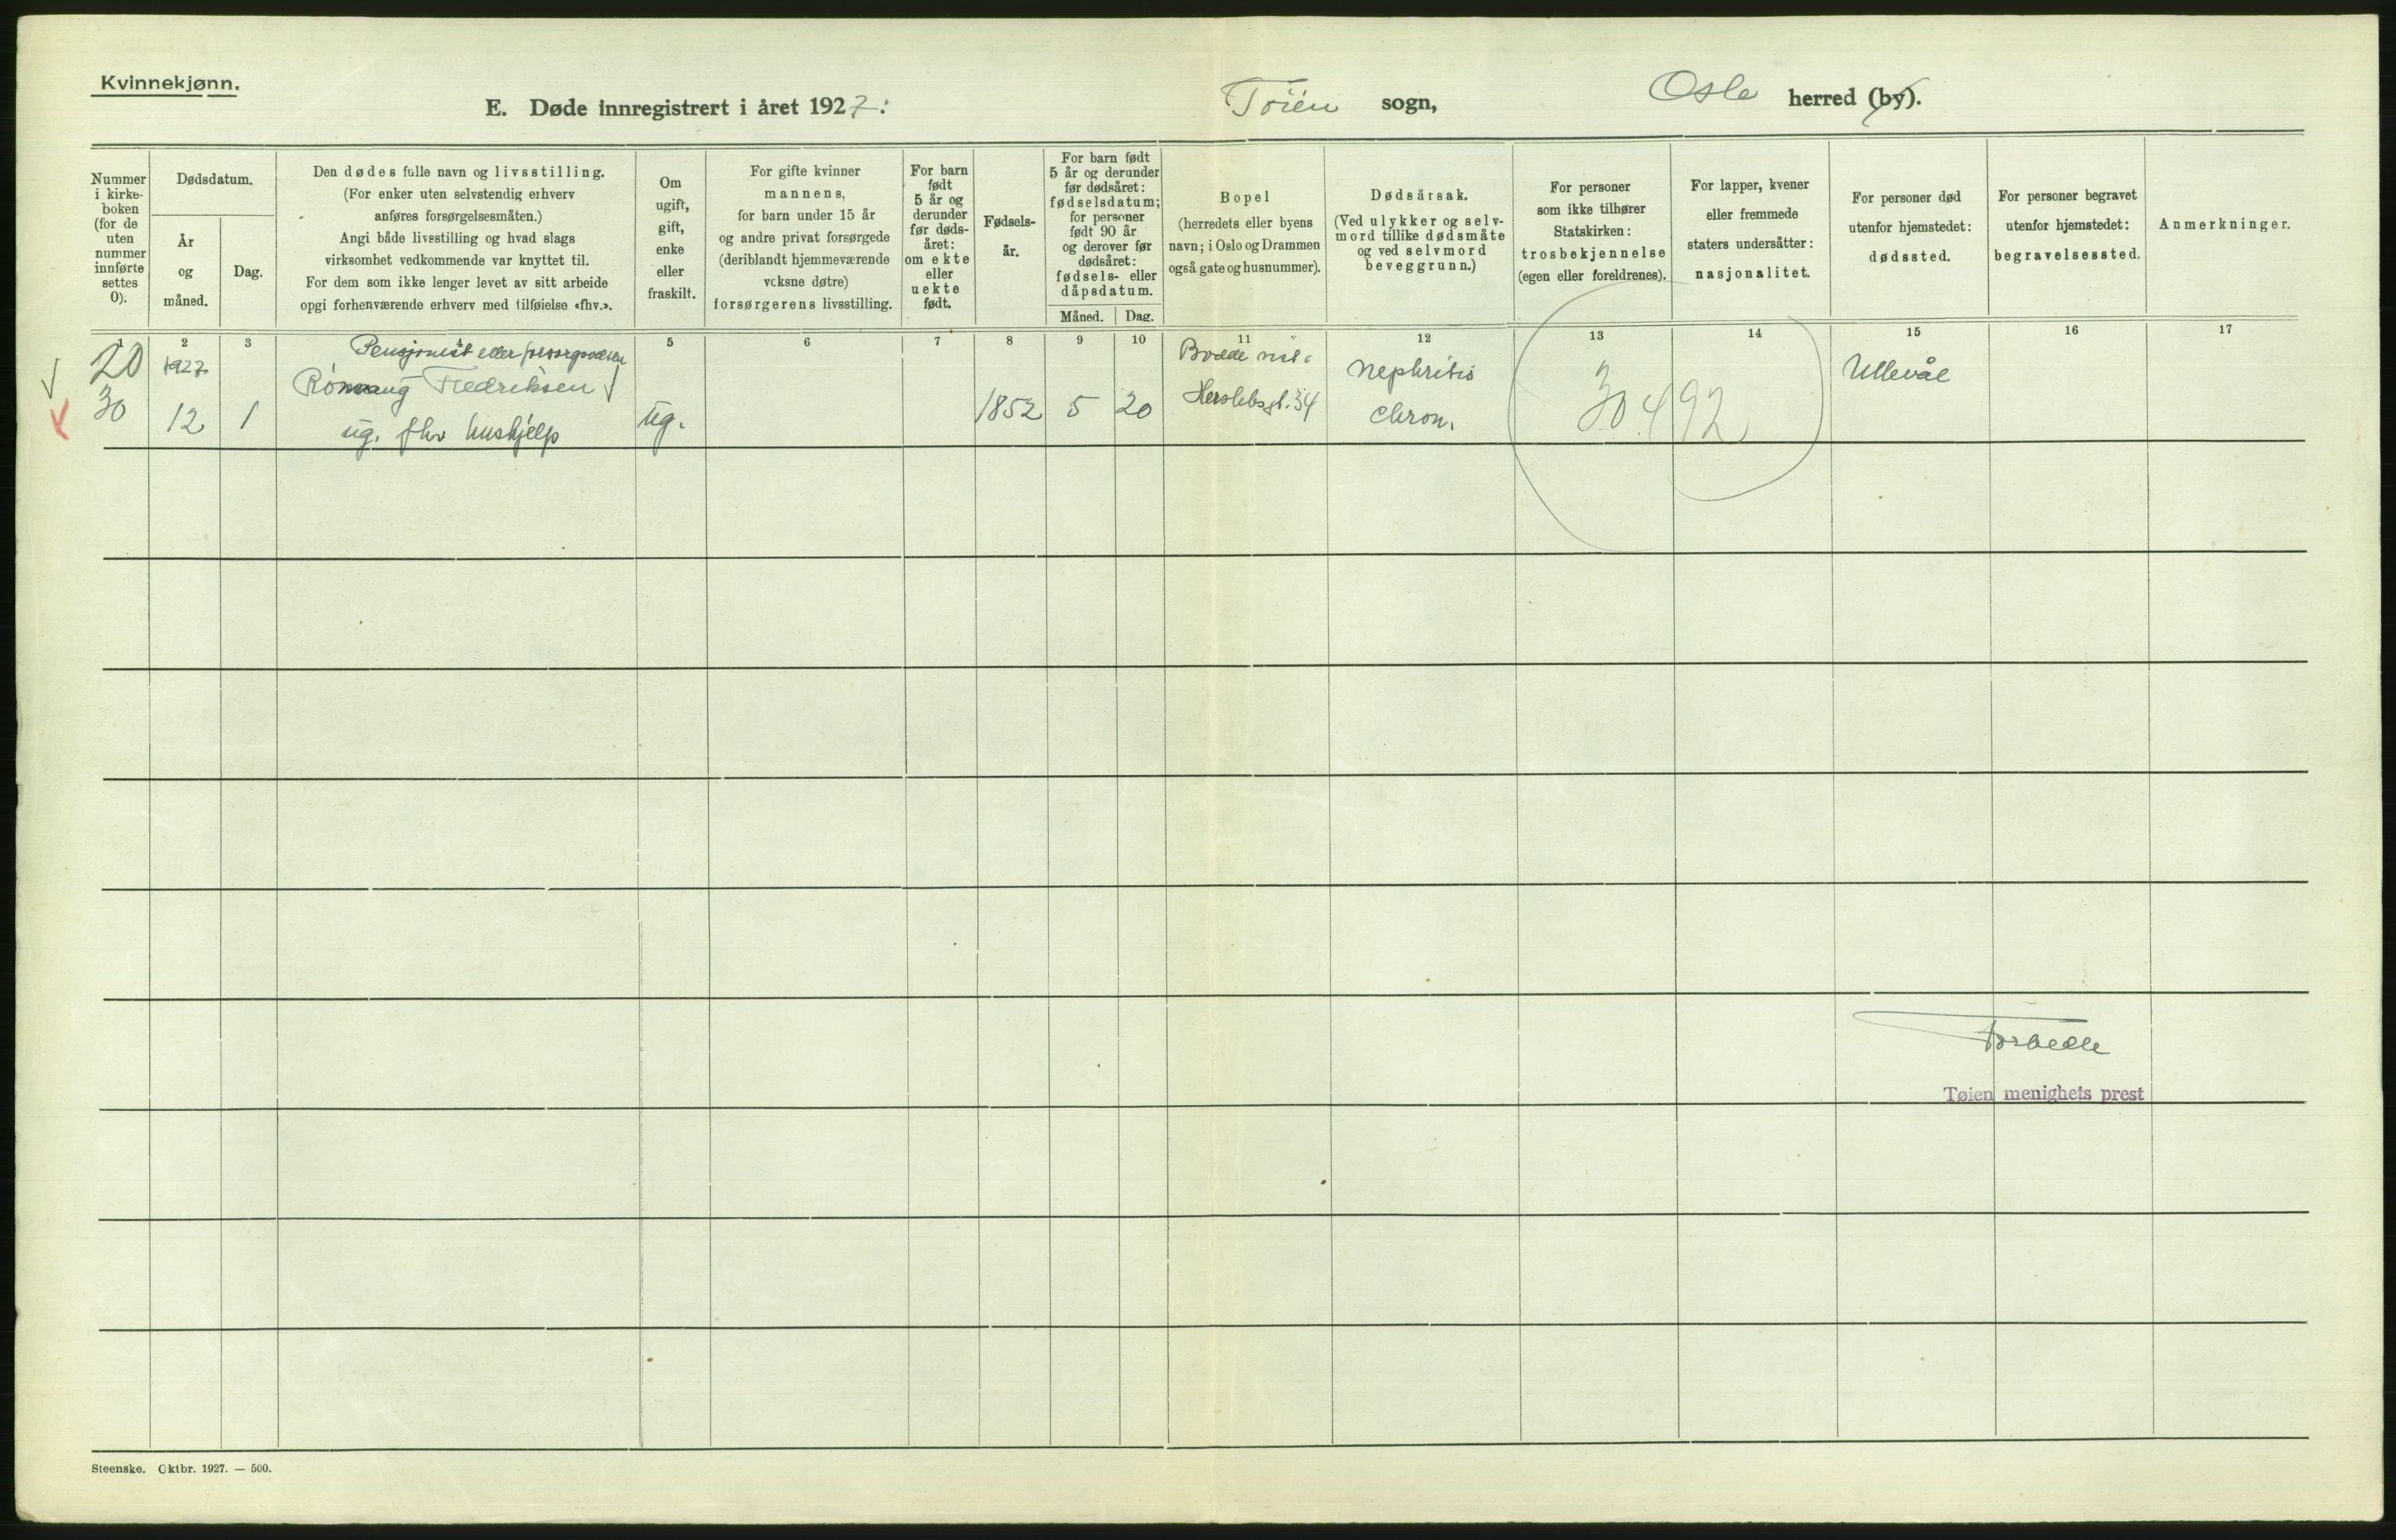 Kvinnekjønn.
E. Døde innregistrert i året 1927:
Töien sogn,
Oslo herred (by).
Nummer i kirke-boken (for de uten nummer innførte settes 0).
Dødsdatum.
År og måned.
Dag.
Den dødes fulle navn og livsstilling.
(For enker uten selvstendig erhverv
anføres forsørgelsesmåten.)
Angi både livsstilling og hvad slags
virksomhet vedkommende var knyttet til.
For dem som ikke lenger levet av sitt arbeide
opgi forhenværende erhverv med tilføielse «fhv.».
Om
ugift,
gift,
enke
eller
fraskilt.
For gifte kvinner
mannens,
for barn under 15 år
og andre privat forsørgede
(deriblandt hjemmeværende
voksne døtre)
forsørgerens livsstilling.
For barn
født
5 år og
derunder
før døds-
året:
om ekte
eller
uekte
født.
Fødsels-
år.
For barn født
5 år og derunder
før dødsåret:
fødselsdatum;
for personer
født 90 år
og derover før
dødsåret:
fødsels- eller
dåpsdatum.
Måned. Dag.
Bopel
(herredets eller byens
navn; i Oslo og Drammen
også gate og husnummer).
Dødsårsak.
(Ved ulykker og selv-
mord tillike dødsmåte
og ved selvmord
beveggrunn.)
For personer
som ikke tilhører
Statskirken:
trosbekjennelse
(egen eller foreldrenes).
For lapper, kvener
eller fremmede
staters undersåtter:
nasjonalitet.
For personer død
utenfor hjemstedet:
dødssted.
For personer begravet
utenfor hjemstedet:
begravelsessted.
Anmerkninger.
1 2 3 5 6 7 8 9 10 11 12 13 14 15 16 17
20 1927 Pensjonist eller
Fredriksen
30 12 1 ug. fhv hushjelp
ug.
1852 5 20
Herslebsgt. 34
Nephritis
chron.
3
30.492
Ullevål
Tøien menighets prest
Steenske. Oktbr. 1927. — 500.